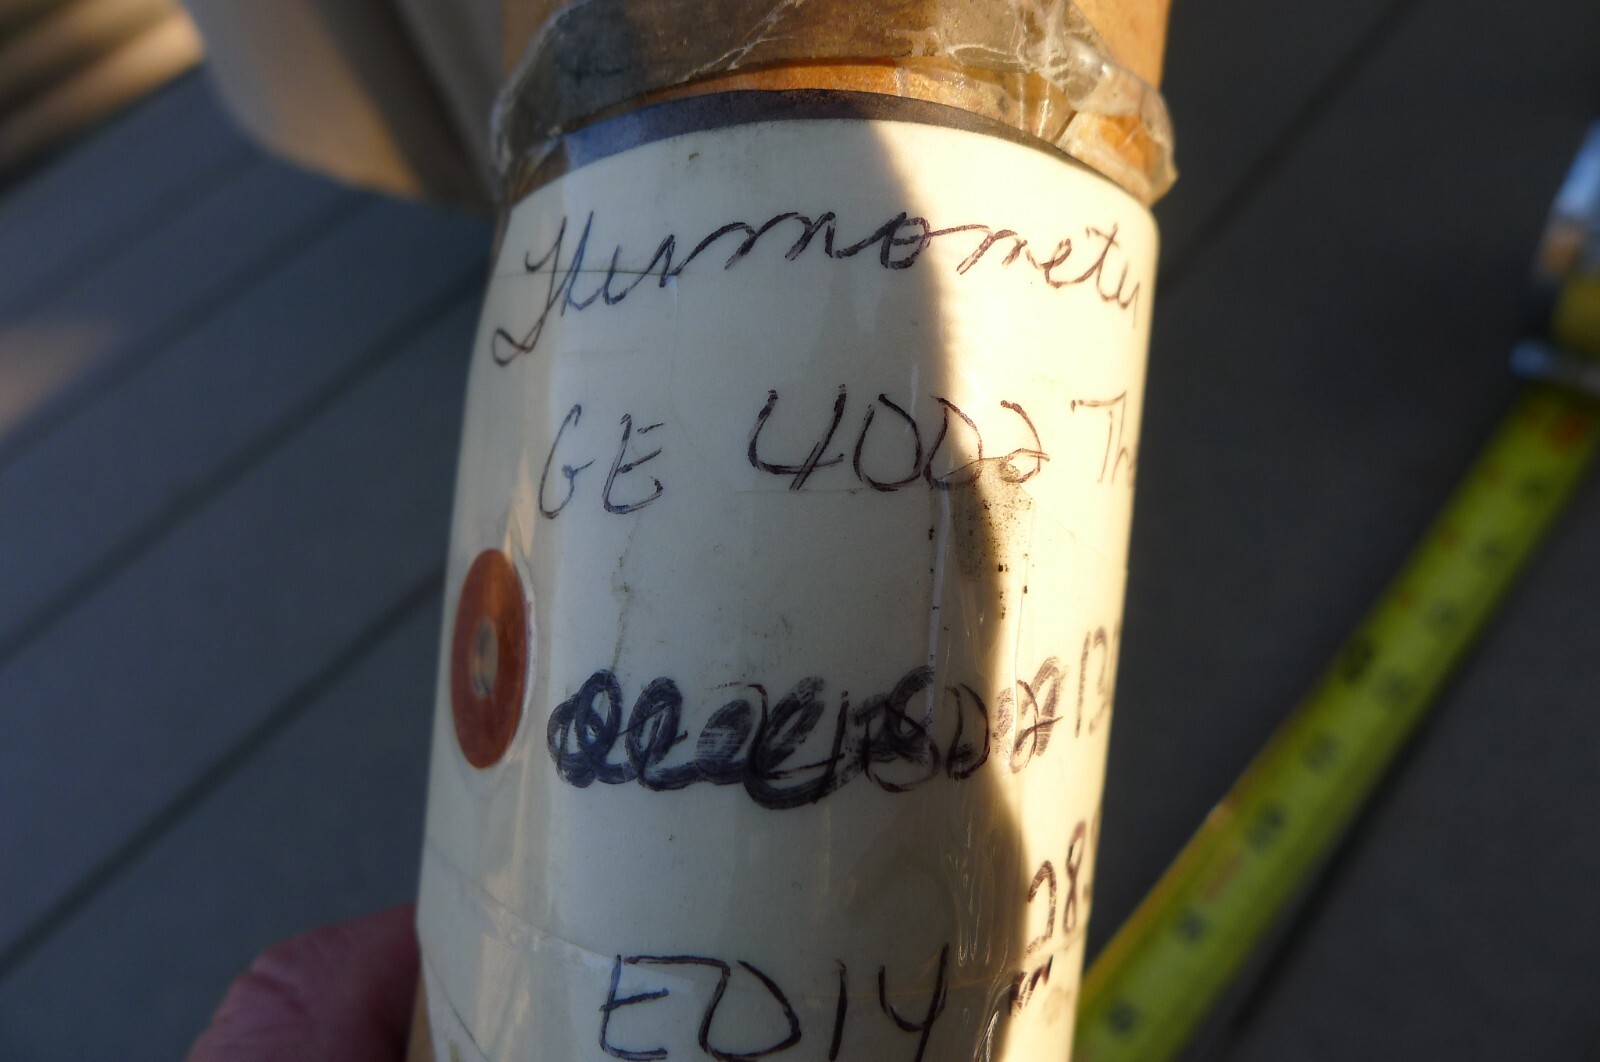 Thermometer
GE 4002 The
13
28
ED14